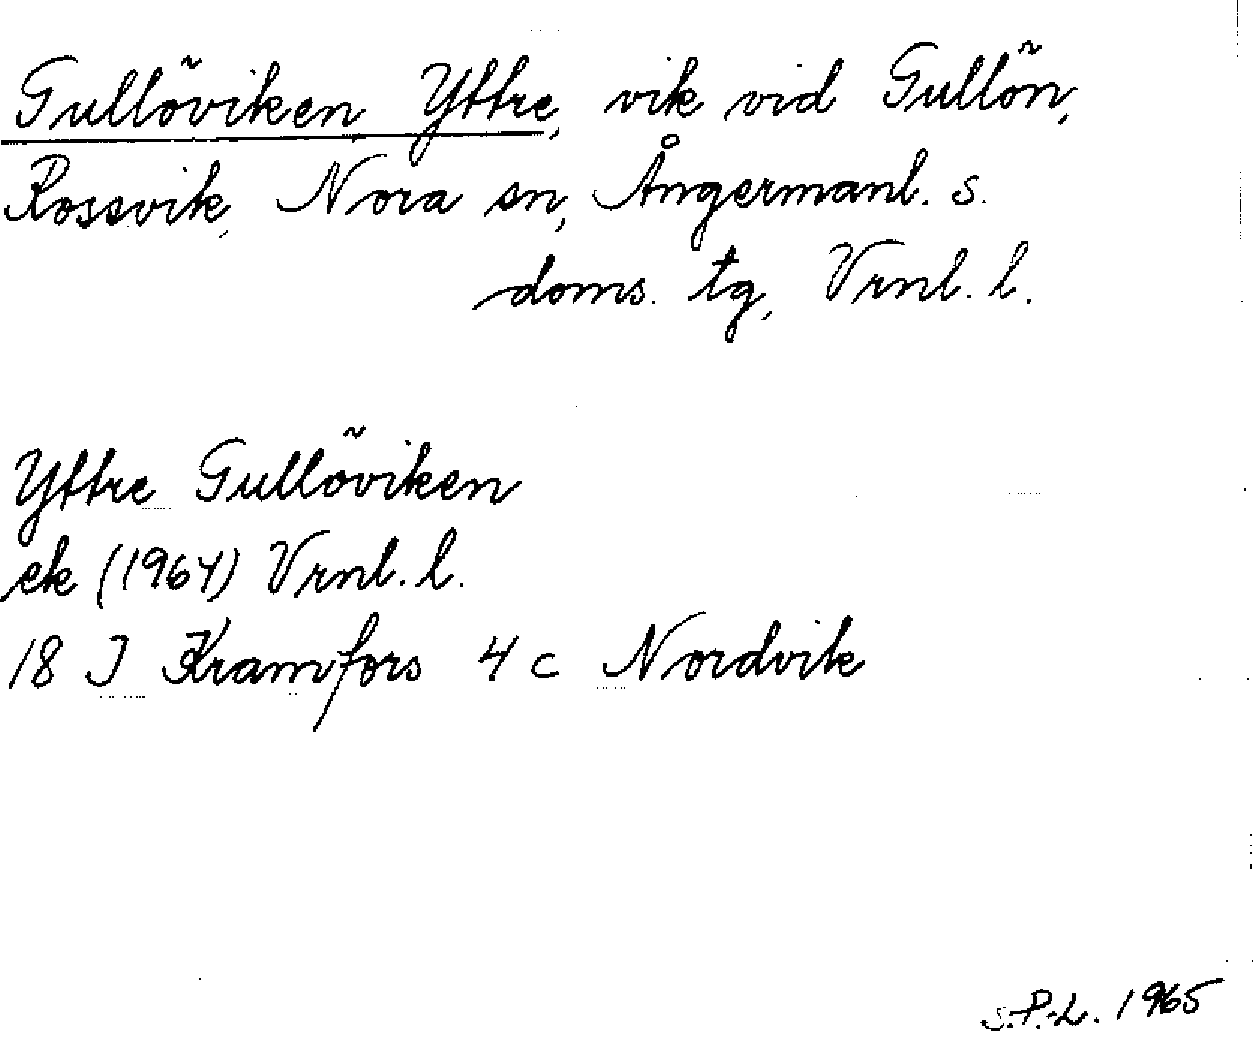 Gullöviken, Yttre, vik vid Gullön,
Rossvik, Nora sn, Ångermanl. s.
doms. tg, Vrnl. l.
Yttre Gullöviken
ek (1964) Vrnl. l.
18 J Kramfors 4 c Nordvik
S.P.L. 1965